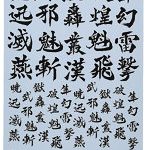 幻雷撃
破煌飛
轟漢
邪魁斬
迅滅燕
隼幻雷撃
破煌飛
獣轟漢
武邪魁斬
暁迅滅燕